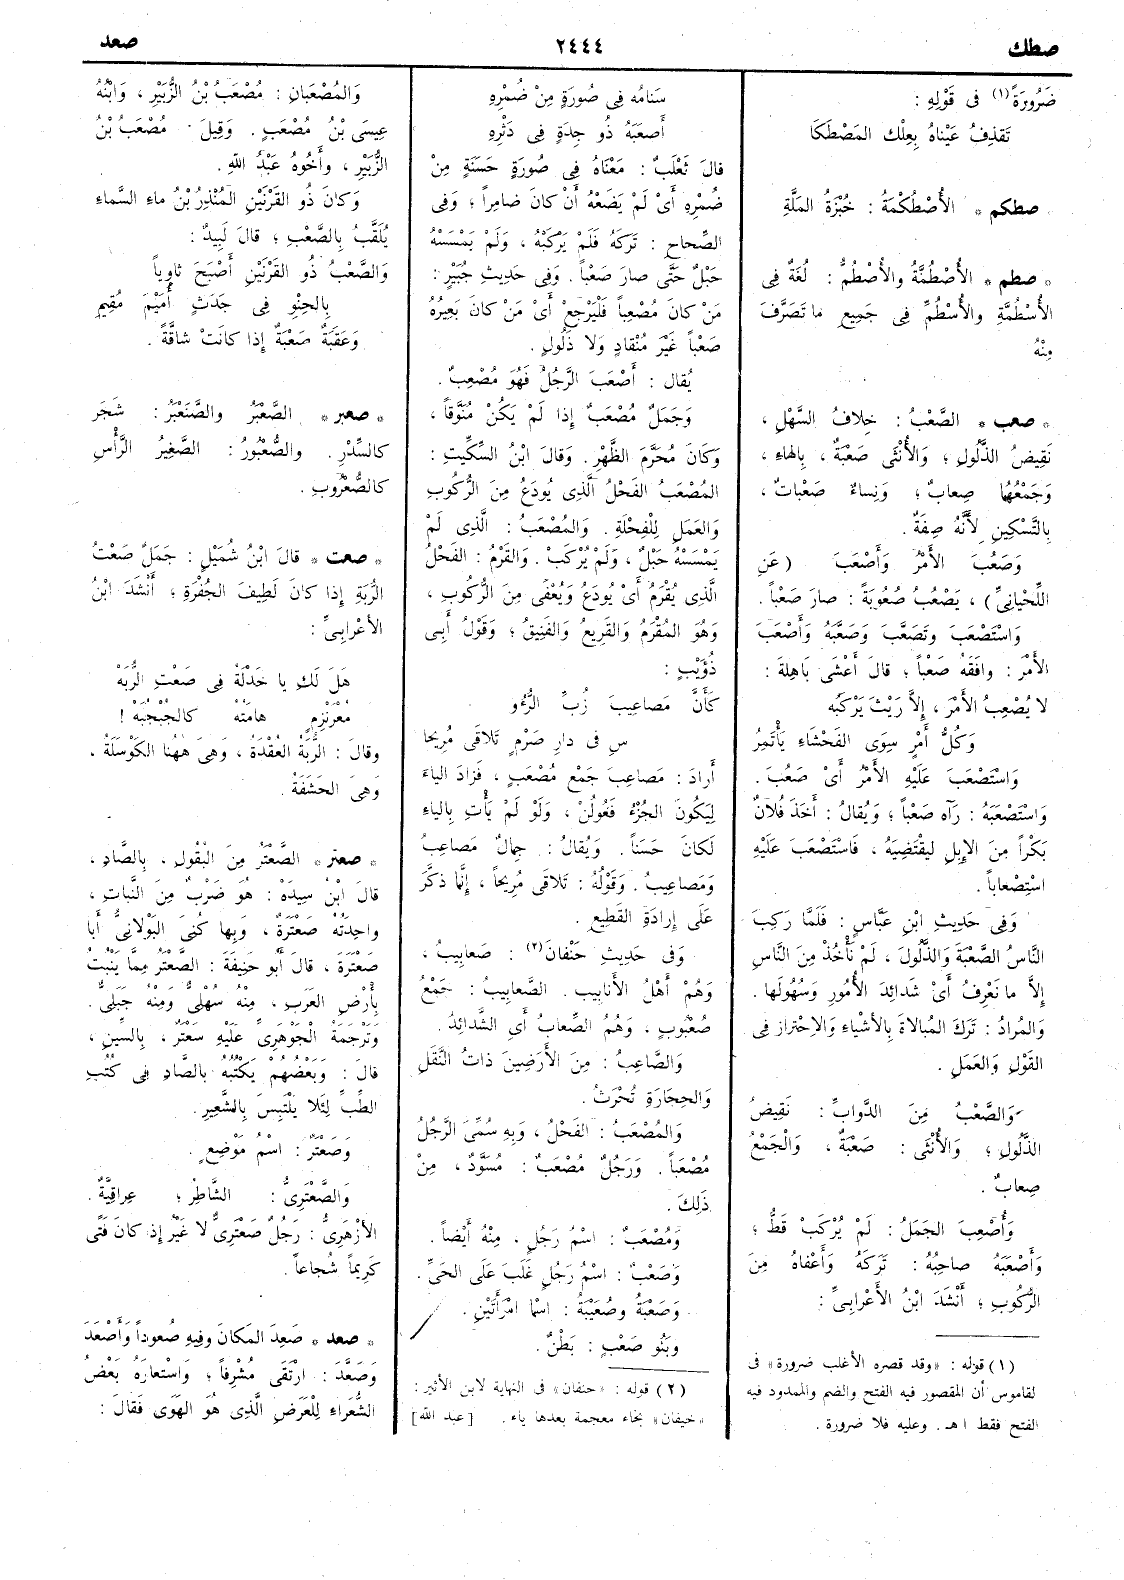 صطك
٢٤٤٤
صعد
ضَرُورَةً (١) فى قَوْلِهِ :
تَقذِفُ عَيْناهُ بِعِلْكِ المَصْطَكَا
صطكم * الأُصْطُكْمَةُ : خُبْزَةُ المَلَّةِ
* صطم * الأُصْطُمَّةُ والأُصْطُمُّ : لُغَةٌ فِى
الأُسْطُمَّةِ والأُسْطُمِّ فِى جَمِيعِ ما تَصَرَّفَ
مِنْهُ
* صعب * الصَّعْبُ : خِلافُ السَّهْلِ ،
نَقِيضُ الذَّلُولِ ؛ وَالأُنْثَى صَعْبَةٌ ، بِالهاءِ ،
وَجَمْعُها صِعابٌ ؛ وَنِساءٌ صَعْباتٌ ،
بِالتَّسْكِينِ لأَنَّهُ صِفَةٌ .
وَصَعُبَ الأَمْرُ وَأَصْعَبَ ( عَنِ
اللِّحْيانِىِّ ) ، يَصْعُبُ صُعُوبَةً : صارَ صَعْباً .
وَاسْتَصْعَبَ وتَصَعَّبَ وَصَعَّبَهُ وَأَصْعَبَ
الأَمْرَ : وافَقَهُ صَعْباً ؛ قالَ أَعْشَى باهِلَةَ :
لا يُصْعِبُ الأَمْرَ ، إِلاَّ رَيْثَ يَرْكَبُه
وَكُلُّ أَمْرٍ سِوَى الفَحْشَاءِ يَأْتَمِرُ
وَاسْتَصْعَبَ عَلَيْهِ الأَمْرُ أَىْ صَعُبَ .
وَاسْتَصْعَبَهُ : رَآه صَعْباً ؛ وَيُقالُ : أَخَذَ فُلانٌ
بَكْراً مِنَ الإِبِلِ لِيقْتَضِيَهُ ، فَاسْتَصْعَبَ عَلَيْهِ
اسْتِصْعاباً .
وَفِى حَدِيثِ ابْنِ عَبَّاسٍ : فَلَمَّا رَكِبَ
النَّاسُ الصَّعْبَةَ وَالذَّلُولَ ، لَمْ نَأْخُذْ مِنَ النَّاسِ
إِلاَّ ما نَعْرِفُ أَىْ شَدائِدَ الأُمُورِ وَسُهُولَها .
وَالمُرادُ : تَرْكُ المُبالاةِ بِالأَشْياءِ وَالاِحْتِرازِ فِى
القَوْلِ وَالعَمَلِ .
وَالصَّعْبُ مِنَ الدَّوابِّ : نَقِيضُ
الذَّلُولِ ؛ وَالأُنْثَى : صَعْبَةٌ ، وَالْجَمْعُ
صِعابٌ .
وَأُصْعِبَ الجَمَلُ : لَمْ يُرْكَبْ قَطُّ ؛
وَأَصْعَبَهُ صاحِبُهُ : تَرَكَهُ وَأَعْفاهُ مِنَ
الرُّكُوبِ ؛ أَنْشَدَ ابْنُ الأَعْرابِىِّ :
(١) قوله : «وقد قصره الأغلب ضرورة» فى
لقاموس أن المقصور فيه الفتح والضم والممدود فيه
الفتح فقط اهـ . وعليه فلا ضرورة .
سَنامُه فِى صُورَةٍ مِنْ ضُمْرِهِ
أَصعَبَهُ ذُو جِدَةٍ فِى دَثْرِهِ
قالَ ثَعْلَبٌ : مَعْناهُ فِى صُورَةٍ حَسَنَةٍ مِنْ
ضُمْرِهِ أَىْ لَمْ يَضَعْهُ أَنْ كانَ ضامِراً ؛ وَفِى
الصِّحاحِ : تَرَكَهُ فَلَمْ يَرْكَبْهُ ، وَلَمْ يَمْسَسْهُ
حَبْلٌ حَتَّى صارَ صَعْباً . وَفِى حَدِيثِ جُبَيْرٍ :
مَنْ كانَ مُصْعِباً فَلْيَرْجِعْ أَىْ مَنْ كانَ بَعِيرُهُ
صَعْباً غَيْرَ مُنْقادٍ وَلا ذَلُولٍ .
يُقال : أَصْعَبَ الرَّجُلُ فَهُوَ مُصْعِبٌ .
وَجَمَلٌ مُصْعَبٌ إِذا لَمْ يَكُنْ مُنَوَّقاً ،
وَكانَ مُحَرَّمَ الظَّهْرِ . وَقالَ ابْنُ السِّكِّيتِ :
المُصْعَبُ الفَحْلُ الَّذِى يُودَعُ مِنَ الرُّكُوبِ
وَالعَمَلِ لِلْفِحْلَةِ . وَالمُصْعَبُ : الَّذِى لَمْ
يَمْسَسْهُ حَبْلٌ ، وَلَمْ يُرْكَبْ . وَالقَرْمُ : الفَحْلُ
الَّذِى يُقْرَمُ أَىْ يُودَعُ وَيُعْفَى مِنَ الرُّكُوبِ ،
وَهُوَ المُقْرَمُ وَالقَرِيعُ وَالفَنِيقُ ؛ وَقَوْلُ أَبِى
ذُؤَيْبٍ :
كَأَنَّ مَصاعِيبَ زُبَّ الرُّءُو
سِ فِى دارِ صَرْمٍ تَلاقَى مُرِيحا
أَرادَ : مَصاعِبَ جَمْعَ مُصْعَبٍ ، فَزادَ الياءَ
لِيَكُونَ الجُزْءُ فَعُولُنْ ، وَلَوْ لَمْ يَأْتِ بِالياءِ
لَكانَ حَسَناً . وَيُقالُ : جِمالٌ مَصاعِبُ
وَمَصاعِيبُ . وَقَوْلُهُ : تَلاقَى مُرِيحاً ، إِنَّما ذَكَّرَ
عَلَى إِرادَةِ القَطِيعِ .
وَفى حَدِيثِ حَنْفانَ (٢) : صَعابِيبُ ،
وَهُمْ أَهْلُ الأَنابِيبِ . الصَّعابِيبُ : جَمْعُ
صُعْبُوبٍ ، وَهُمُ الصِّعابُ أَىِ الشَّدائِدُ .
وَالصَّاعِبُ : مِنَ الأَرَضِينَ ذاتُ النَّقَلِ
وَالحِجارَةِ تُحْرَثُ .
وَالمُصْعَبُ : الفَحْلُ ، وَبِهِ سُمِّىَ الرَّجُلُ
مُصْعَباً . وَرَجُلٌ مُصْعَبٌ : مُسَوَّدٌ ، مِنْ
ذٰلِكَ .
وَمُصْعَبٌ : اسْمُ رَجُلٍ ، مِنْهُ أَيْضاً .
وَصَعْبٌ : اسْمُ رَجُلٍ غَلَبَ عَلَى الحَىِّ .
وَصَعْبَةُ وَصُعَيْبَةُ : اسْما امْرَأَتَيْنِ .
وَبَنُو صَعْبٍ : بَطْنٌ .
(٢) قوله : «حنفان» فى النهاية لابن الأثير :
«خيفان» بخاء معجمة بعدها ياء . [عبد الله]
وَالمُصْعَبانِ : مُصْعَبُ بْنُ الزُّبَيْرِ ، وَابْنُهُ
عِيسَى بْنُ مُصْعَبٍ . وَقِيلَ مُصْعَبُ بْنُ
الزُّبَيْرِ ، وأَخُوهُ عَبْدُ اللهِ .
وَكانَ ذُو القَرْنَيْنِ المُنْذِرُ بْنُ ماءِ السَّماءِ
يُلَقَّبُ بِالصَّعْبِ ؛ قالَ لَبِيدٌ :
وَالصَّعْبُ ذُو القَرْنَيْنِ أَصْبَحَ ثاوِياً
بِالحِنْوِ فِى جَدَثٍ أُمَيْمَ مُقِيمِ
وَعَقَبَةٌ صَعْبَةٌ إِذا كانَتْ شاقَّةً .
* صعبر * الصَّعْبَرُ والصَّنَعْبَرُ : شَجَر
كالسِّدْرِ . والصُّعْبُورُ : الصَّغِيرُ الرَّأْسِ
كالصُّعْرُوبِ .
* صعت * قالَ ابْنُ شُمَيْلٍ : جَمَلٌ صَعْتُ
الرُّبَةِ إِذا كانَ لَطِيفَ الجُفْرَةِ ؛ أَنْشَدَ ابْنُ
الأَعْرابِىِّ :
هَلْ لَكِ يا خَدْلَةُ فِى صَعْتِ الرُّبَهْ
مُعْرَنْزِمٍ هامَتُه كَالجُبْجُبَهْ !
وقالَ : الرُّبَةُ العُقْدَةُ ، وَهِىَ هٰهُنا الكَوْسَلَةُ ،
وَهِىَ الحَشَفَةُ .
* صعتر * الصَّعْتَرُ مِنَ الْبُقُولِ ، بِالصَّادِ ،
قالَ ابْنُ سِيدَهْ : هُوَ ضَرْبٌ مِنَ النَّباتِ ،
واحِدَتُهُ صَعْتَرَةٌ ، وَبِها كُنِىَ البَوْلانِىُّ أَبا
صَعْتَرَةَ ، قالَ أَبُو حَنِيفَةَ : الصَّعْتَرُ مِمَّا يَنْبُتُ
بِأَرْضِ العَرَبِ ، مِنْهُ سُهْلِىٌّ وَمِنْهُ جَبَلِىٌّ .
وَتَرْجَمَهُ الْجَوْهَرِىُّ عَلَيْهِ سَعْتَرٌ ، بِالسِّينِ ،
قالَ : وَبَعْضُهُمْ يَكْتُبُهُ بِالصَّادِ فِى كُتُبِ
الطِّبِّ لِئَلَّا يَلْتَبِسَ بِالشَّعِيرِ .
وَصَعْتَرٌ : اسْمُ مَوْضِعٍ .
وَالصَّعْتَرِىُّ : الشَّاطِرُ ؛ عِراقِيَّةٌ .
الأَزْهَرِىُّ : رَجُلٌ صَعْتَرِىٌّ لا غَيْرُ إِذ كانَ فَتًى
كَرِيماً شُجاعاً .
* صعد * صَعِدَ المَكانَ وفِيهِ صُعوداً وَأَصْعَدَ
وَصَعَّدَ : ارْتَقَى مُشْرِفاً ؛ وَاسْتَعارَهُ بَعْضُ
الشُّعَراءِ لِلْعَرَضِ الَّذِى هُوَ الهَوَى فَقالَ :